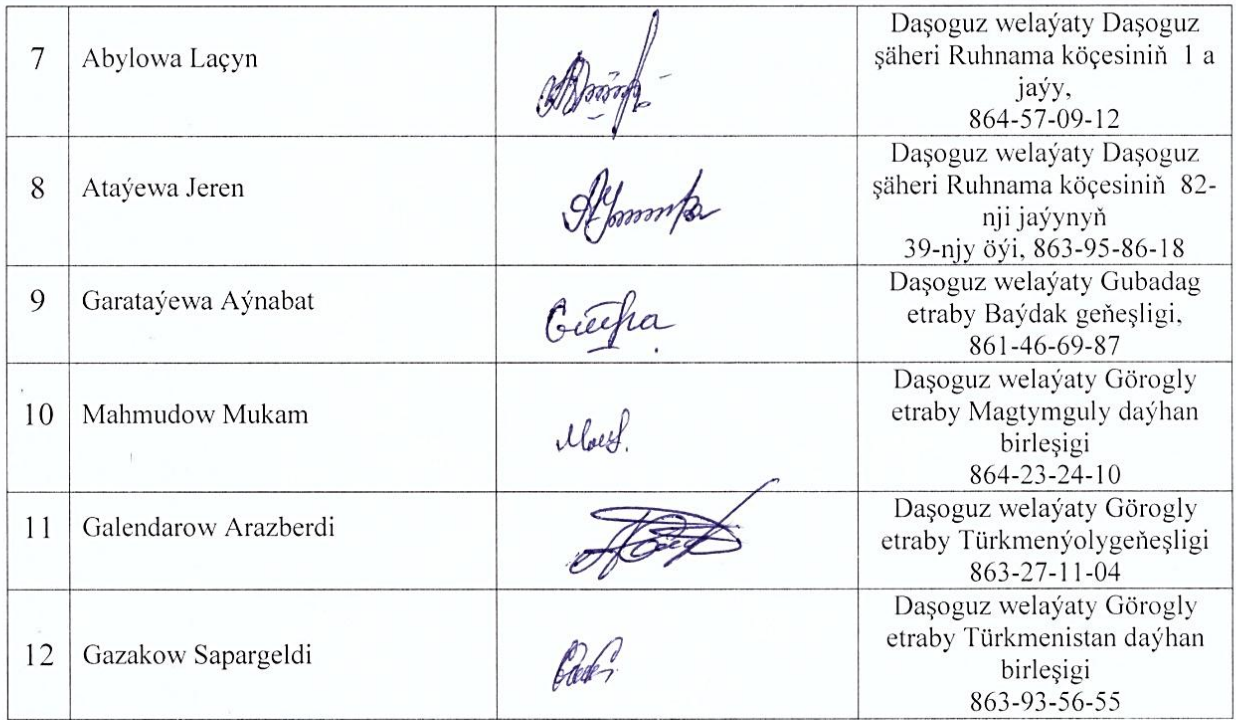 7
Abylowa Laçyn
Daşoguz welaýaty Daşoguz
şäheri Ruhnama köçesiniň 1 a
jaýy,
864-57-09-12
8
Ataýewa Jeren
Daşoguz welaýaty Daşoguz
şäheri Ruhnama köçesiniň 82-
nji jaýynyň
39-njy öýi, 863-95-86-18
9
Garataýewa Aýnabat
Daşoguz welaýaty Gubadag
etraby Baýdak geňeşligi,
861-46-69-87
10
Mahmudow Mukam
Daşoguz welaýaty Görogly
etraby Magtymguly daýhan
birleşigi
864-23-24-10
11
Galendarow Arazberdi
Daşoguz welaýaty Görogly
etraby Türkmenýolygeňeşligi
863-27-11-04
12
Gazakow Sapargeldi
Daşoguz welaýaty Görogly
etraby Türkmenistan daýhan
birleşigi
863-93-56-55